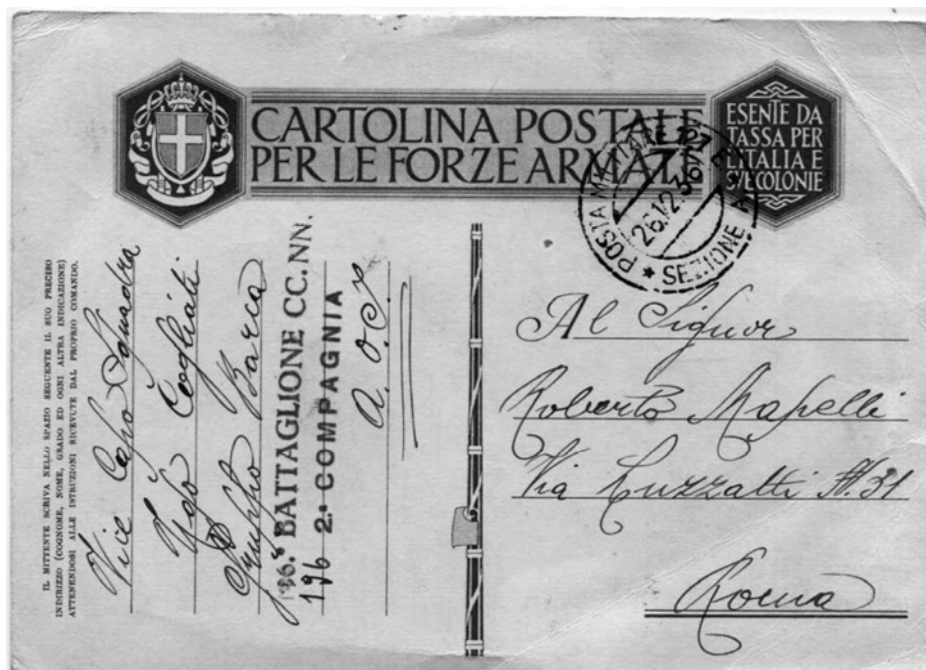 CARTOLINA POSTALE
PER LE FORZE ARMATE
ESENTE DA
TASSA PER
L'ITALIA E
SVE COLONIE
POSTA MILITARE
26.12.36
SEZIONE A
IL MITTENTE SCRIVA NELLO SPAZIO SEGUENTE IL SUO PRECISO
INDIRIZZO (COGNOME, NOME, GRADO ED OGNI ALTRA INDICAZIONE)
ATTENENDOSI ALLE ISTRUZIONI RICEVUTE DAL PROPRIO COMANDO.
Vice Capo Squadra
Ugo Cogliati
Gruppo Barca
BATTAGLIONE CC.NN.
196 2ª COMPAGNIA
A. O. I
Al Signor
Roberto Mapelli
Via Luzzatti N. 31
Roma